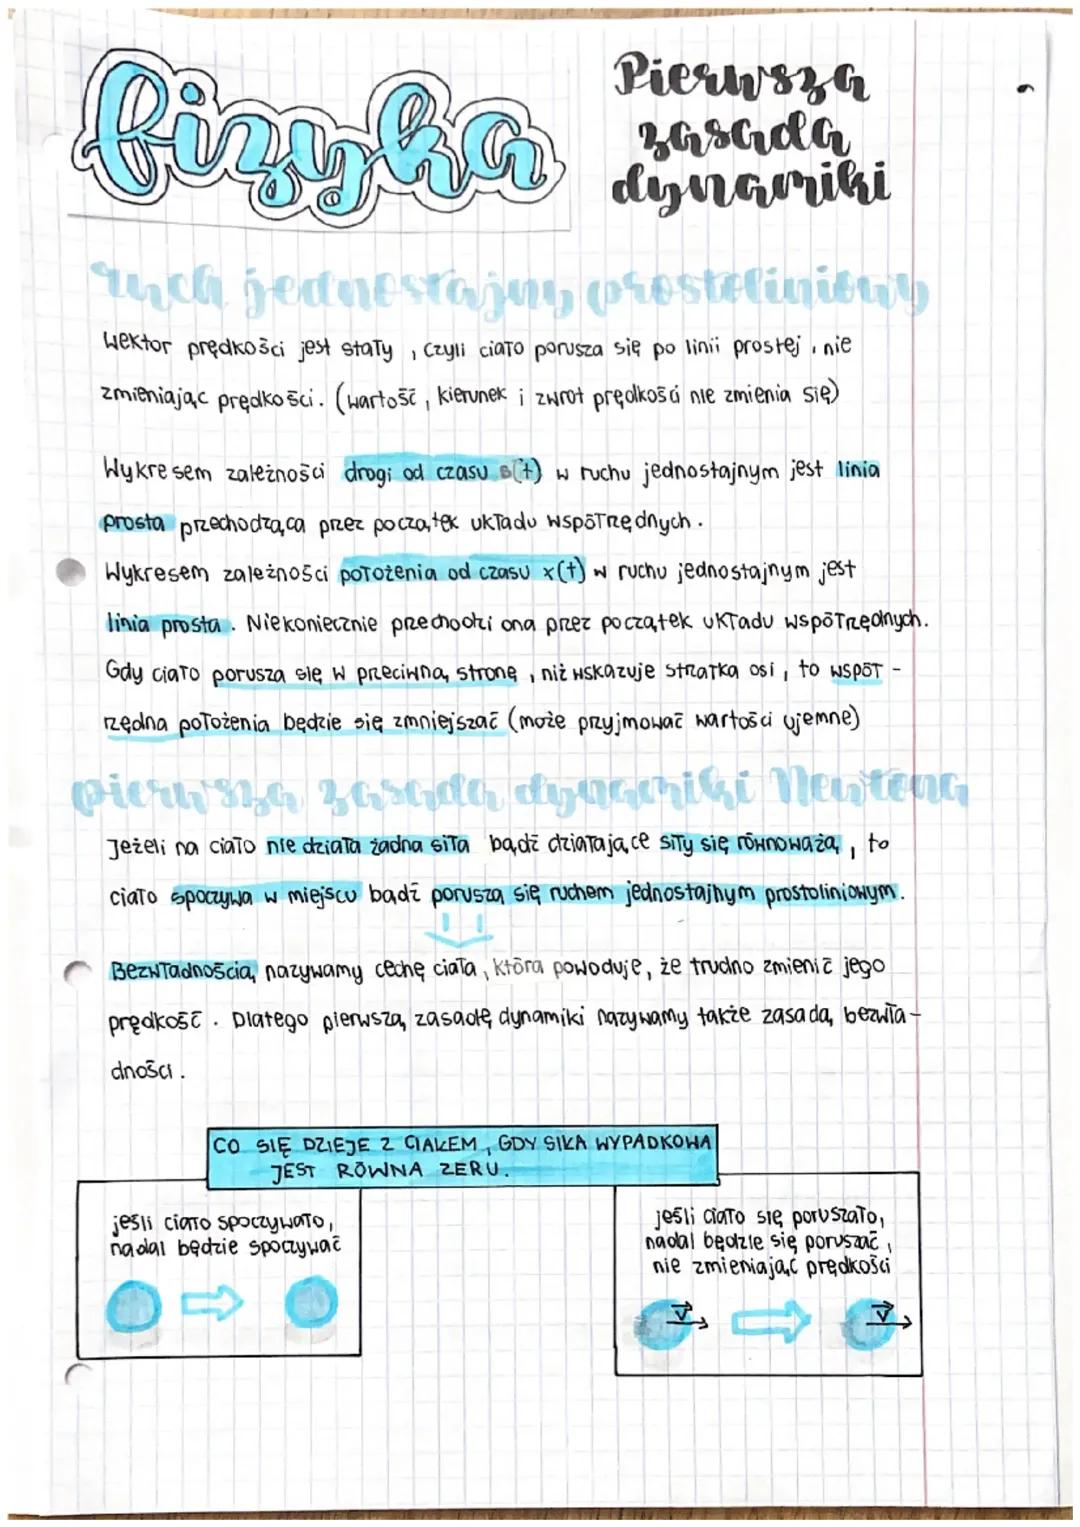 fizyka
Pierwsza
zasada
dynamiki
ruch jednostajny prostoliniowy
Wektor prędkości jest stały, czyli ciało porusza się po linii prostej, nie
zmieniając prędkości. (wartość, kierunek i zwrot prędkości nie zmienia się)
Wykresem zależności drogi od czasu s(t) w ruchu jednostajnym jest linia
prosta przechodząca przez początek układu współrzędnych.
Wykresem zależności położenia od czasu x(t) w ruchu jednostajnym jest
linia prosta. Niekoniecznie przechodzi ona przez początek układu współrzędnych.
Gdy ciało porusza się w przeciwną stronę, niż wskazuje strzałka osi, to współ-
rzędna położenia będzie się zmniejszać (może przyjmować wartości ujemne)
pierwsza zasada dynamiki Newtona
Jeżeli na ciało nie działa żadna siła bądź działające siły się równoważą, to
ciało spoczywa w miejscu bądź porusza się ruchem jednostajnym prostoliniowym.
Bezwładnością nazywamy cechę ciała, która powoduje, że trudno zmienić jego
prędkość. Dlatego pierwszą zasadę dynamiki nazywamy także zasadą bezwła-
dności.
CO SIĘ DZIEJE Z CIAŁEM, GDY SIŁA WYPADKOWA
JEST RÓWNA ZERU.
jeśli ciało spoczywało,
nadal będzie spoczywać
jeśli ciało się poruszało,
nadal będzie się poruszać,
nie zmieniając prędkości
v v